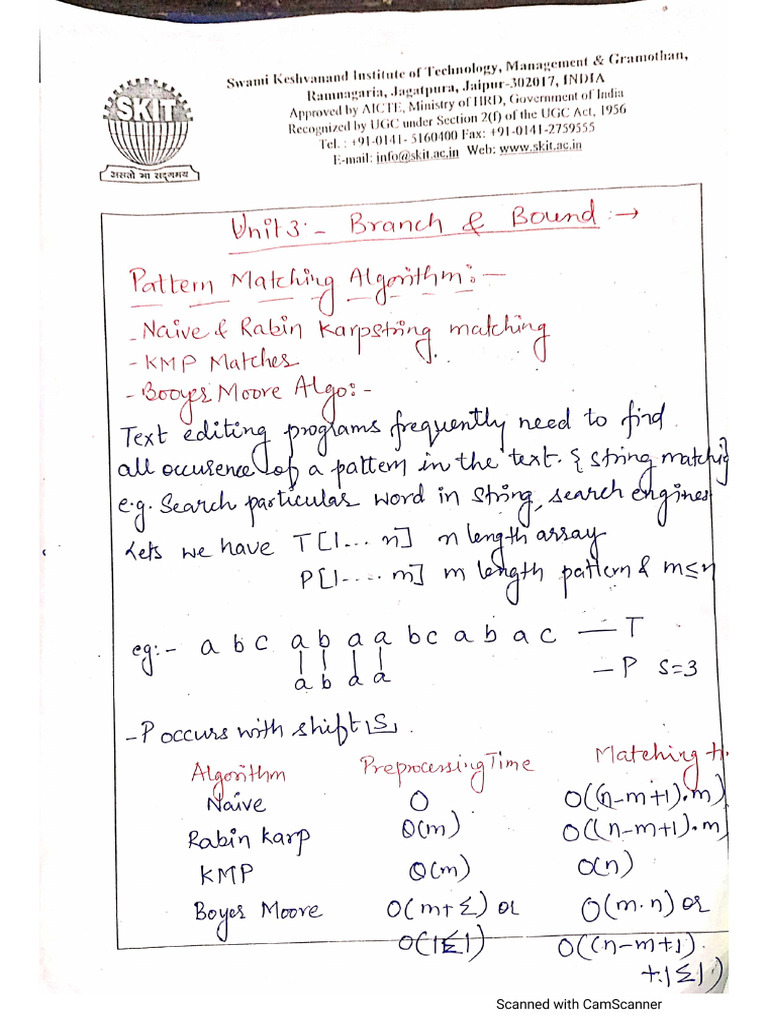 Swami Keshvanand Institute of Technology, Management & Gramothan,
Ramnagaria, Jagatpura, Jaipur-302017, INDIA
Approved by AICTE, Ministry of HRD, Government of India
Recognized by UGC under Section 2(f) of the UGC Act, 1956
Tel. : +91-0141- 5160400 Fax: +91-0141-2759555
E-mail: info@skit.ac.in Web: www.skit.ac.in
SKIT
असतो मा सद्गमय
Unit 3:- Branch & Bound :→
Pattern Matching Algorithm:-
- Naive & Rabin Karpstring matching
- KMP Matches
- Booyer Moore Algo:-
Text editing programs frequently need to find
all occurence of a pattern in the text. { string matchig
e.g. Search particular word in string, search engines
Lets we have T[1... n] n length array
P[1.... m] m length pattern & m≤n
eg:- a b c a b a a b c a b a c — T
a b a a — P S=3
- P occurs with shift |S|.
Algorithm Preprocessing Time Matching t.
Naive O O((n-m+1).m)
Rabin Karp Θ(m) O((n-m+1).m)
KMP Θ(m) O(n)
Boyer Moore O(m+Σ) or O(m.n) or
O(|Σ|) O((n-m+1).
+|Σ|)
Scanned with CamScanner